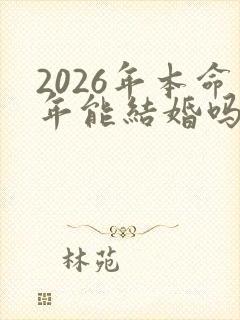 2026年本命
年能結婚吗
林苑